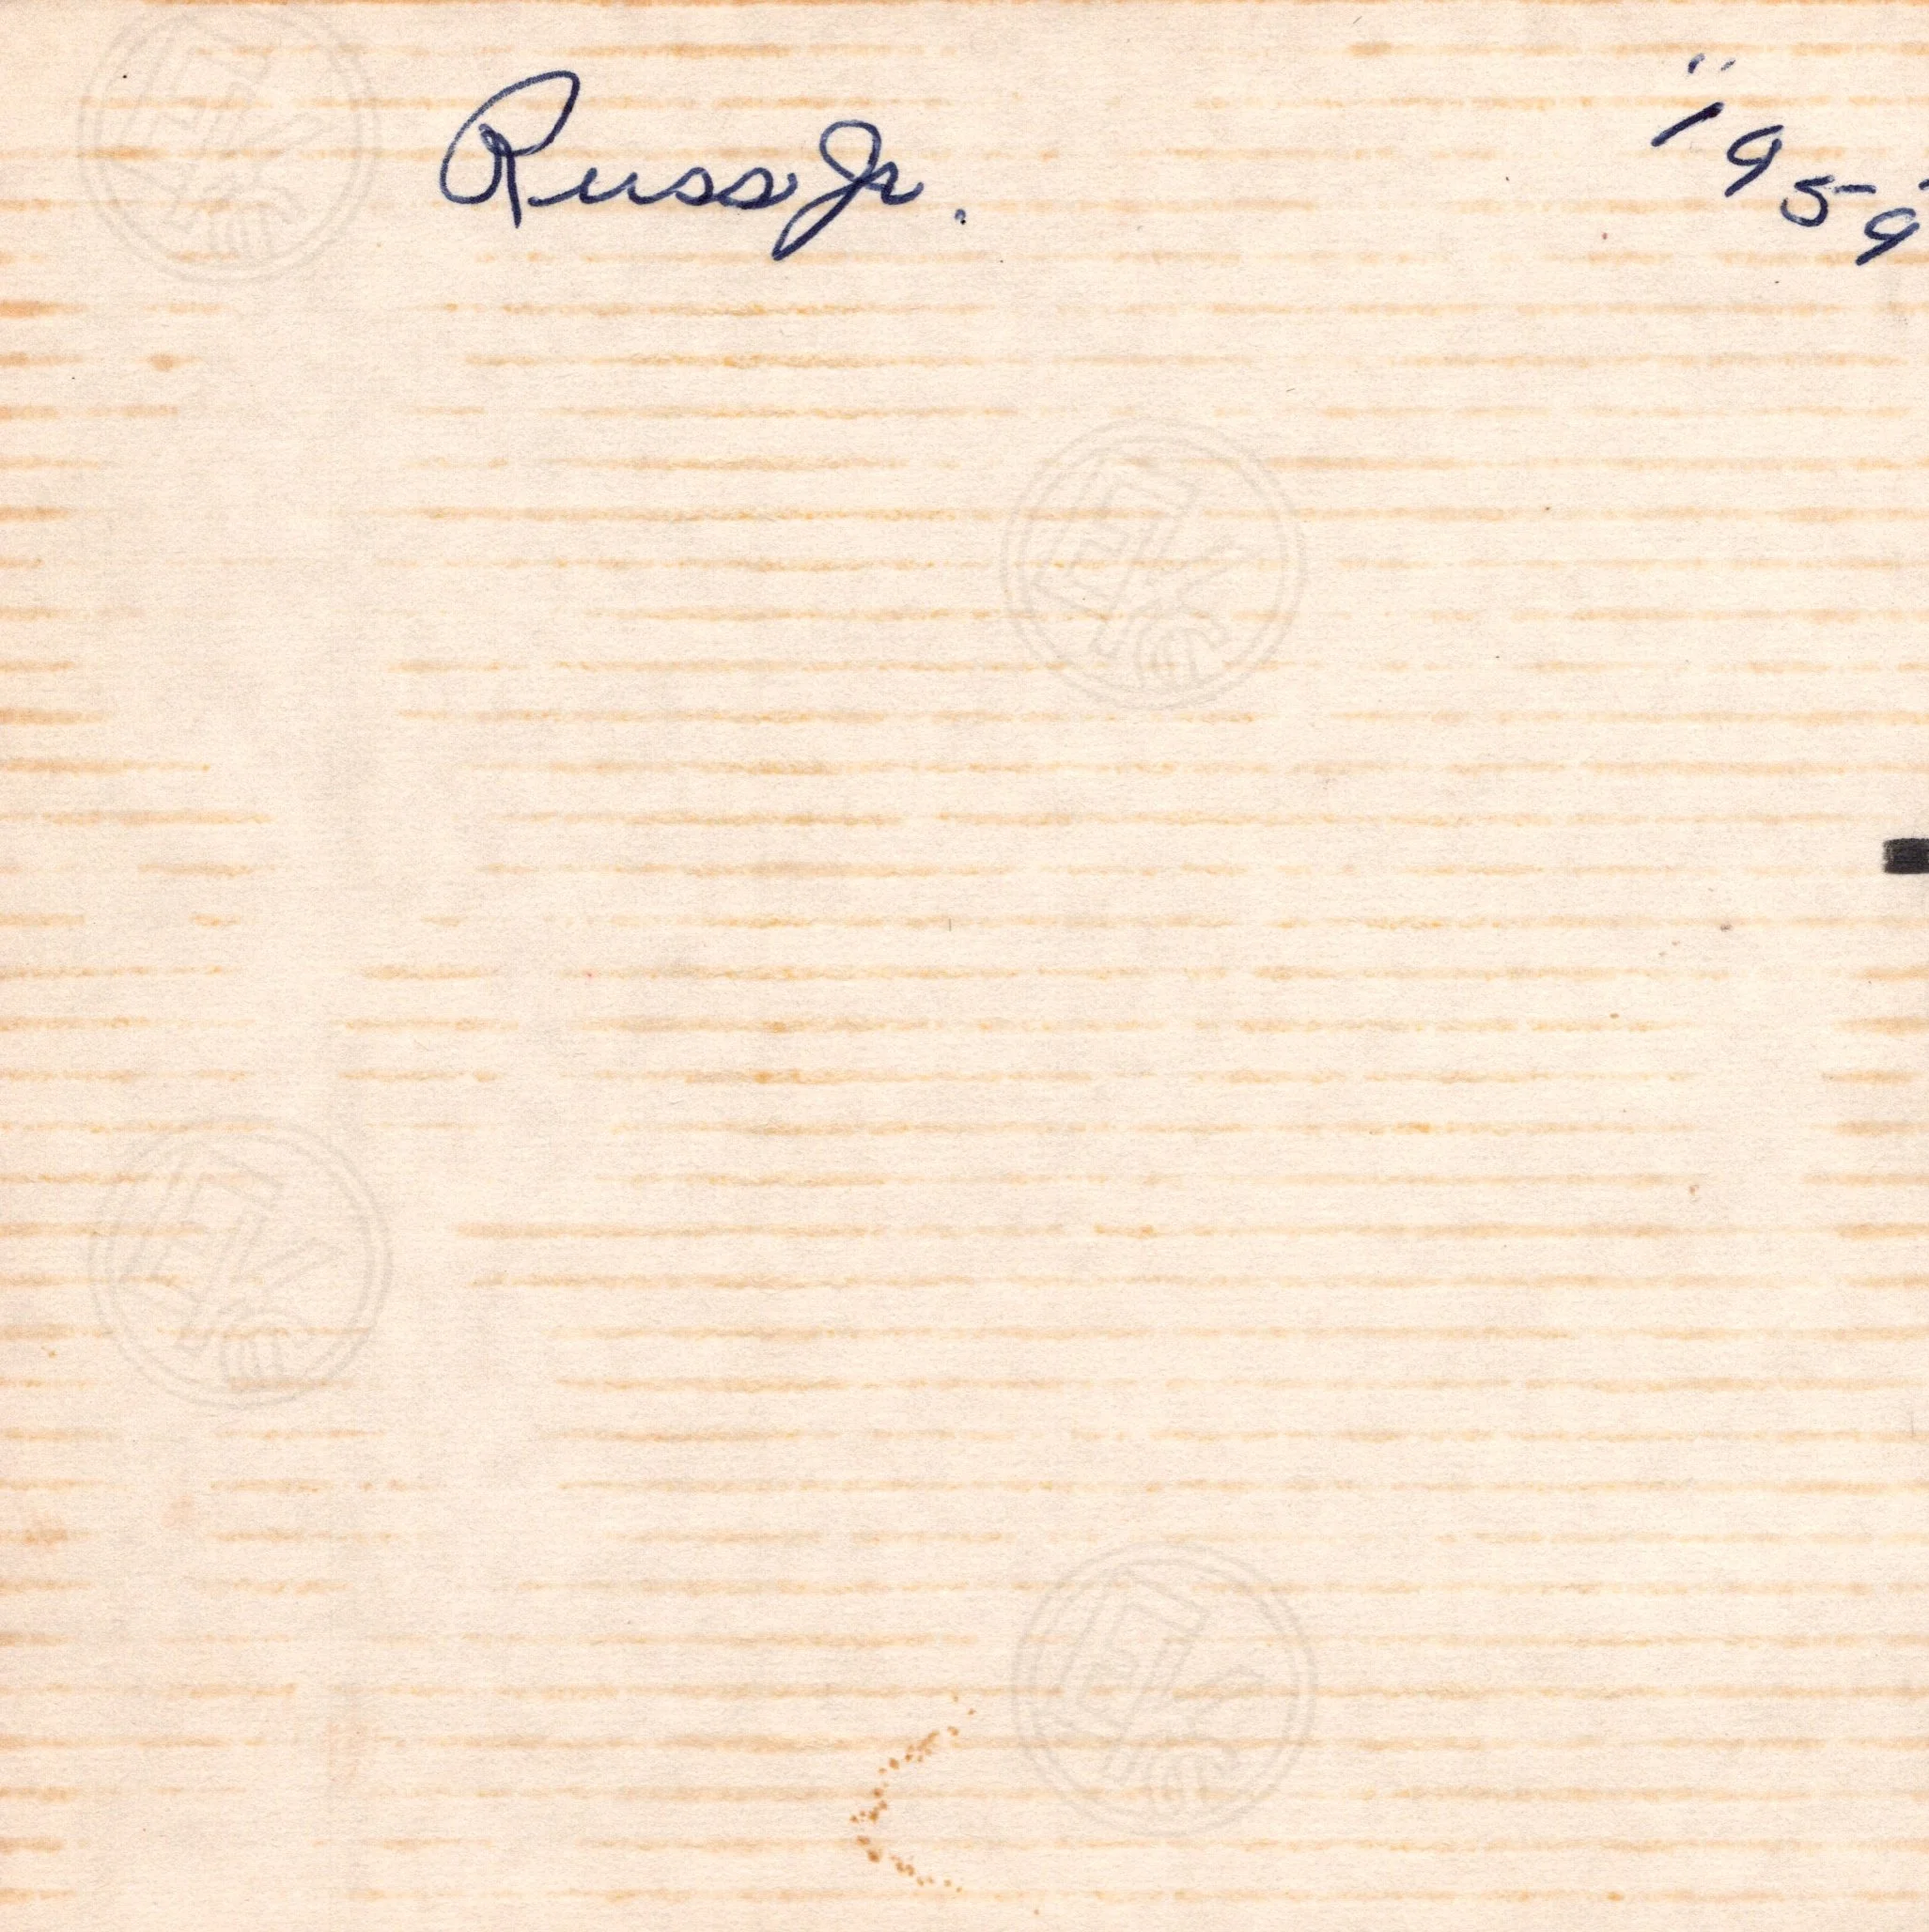 Russ Jr.
1959